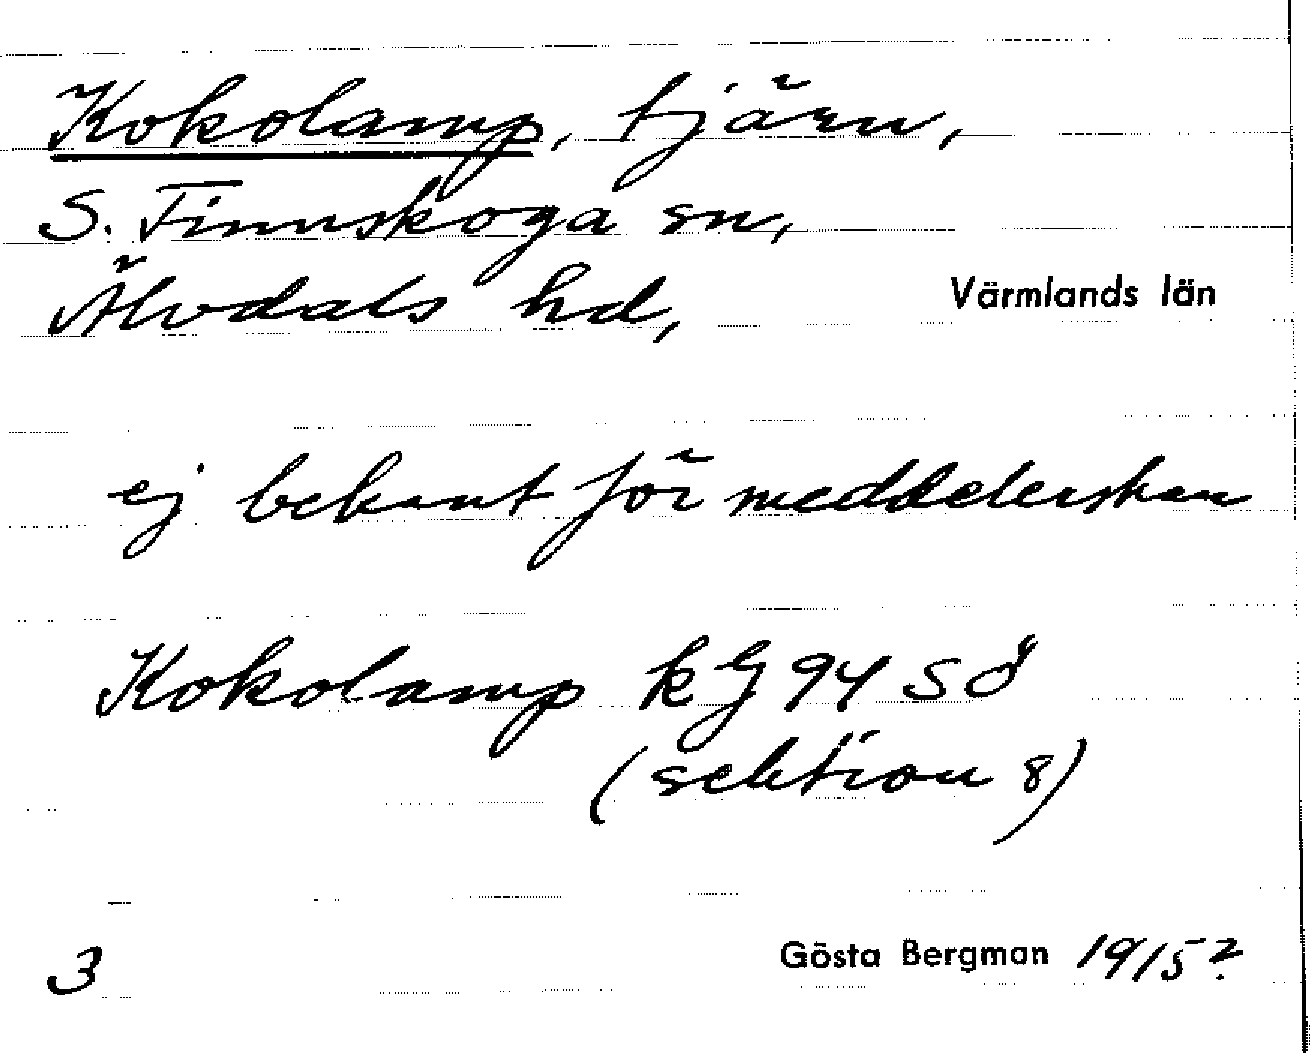 Kokolamp, tjärn,
S. Finnskoga sn,
Älvdals hd,
Värmlands län
ej bekant för meddelerskan
Kokolamp kG 94 SÖ
(sektion 8)
3
Gösta Bergman 1915?